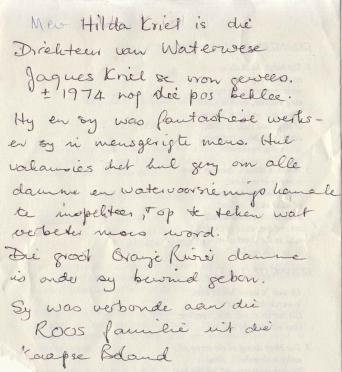 Mev Hilda Kriel is die
Direkteur van Waterwese
Jaques Kriel se vrou gewees.
± 1974 nog die pos beklee.
Hy en sy was fantastiese werk-
er sy 'n mensgerigte mens. Hul
vakansies het hul gery om alle
damme en watervoorsienings kanale
te inspekteer, op te teken wat
verbeter moes word.
Die groot Oranje Rivier damme
is onder sy bewind gebou.
Sy was verbonde aan die
ROOS familie uit die
Kaapse Boland